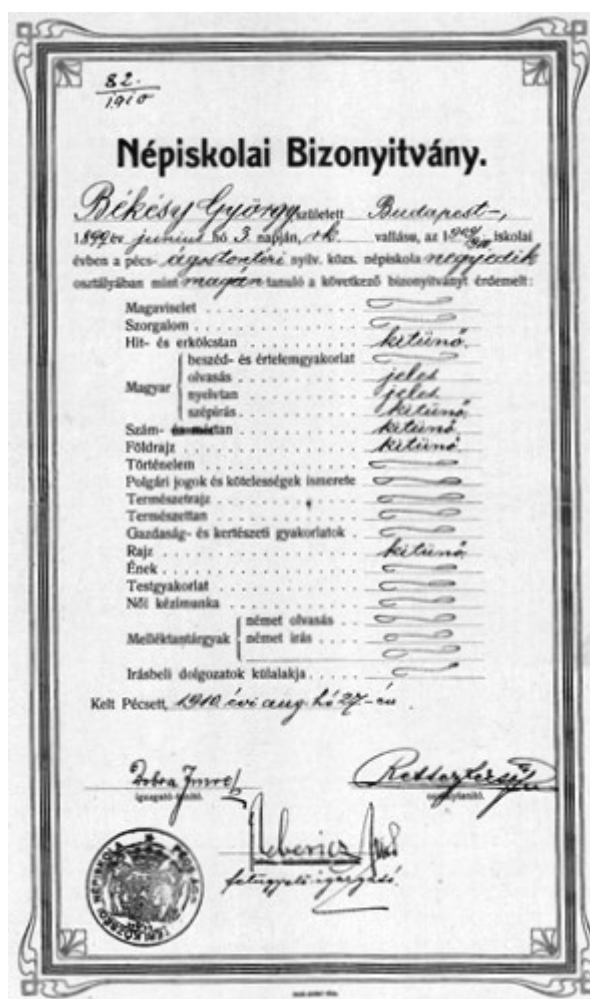 82.
1910
Népiskolai Bizonyitvány.
Békésy György született Budapest-,
1899 év junius hó 3. napján, rk. vallásu, az 1909/910 iskolai
évben a pécs- ágostontéri nyilv. közs. népiskola negyedik
osztályában mint magán tanuló a következő bizonyitványt érdemelt:
Magaviselet
Szorgalom
Hit- és erkölcstan kitünő.
Magyar
beszéd- és értelemgyakorlat
olvasás jeles
nyelvtan jeles
szépirás kitünő
Szám- és mértan kitünő
Földrajz kitünő
Történelem
Polgári jogok és kötelességek ismerete
Természetrajz
Természettan
Gazdaság- és kertészeti gyakorlatok
Rajz kitünő
Ének
Testgyakorlat
Női kézimunka
Melléktantárgyak
német olvasás
német irás
Irásbeli dolgozatok külalakja
Kelt Pécsett, 1910. évi aug. hó 27-én
Dobra Imre
igazgató-tanitó.
osztálytanitó.
felügyelő-igazgató.